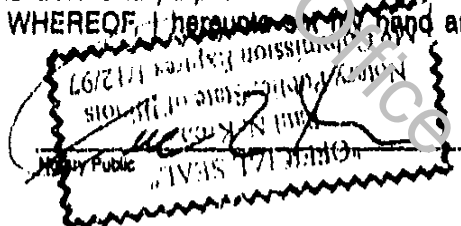 WHEREOF, I hereunto set my hand a
"OFFICIAL SEAL"
Paul N.
Notary Public, State of Illinois
Commission Expires 1/12/97
Notary Public
Office